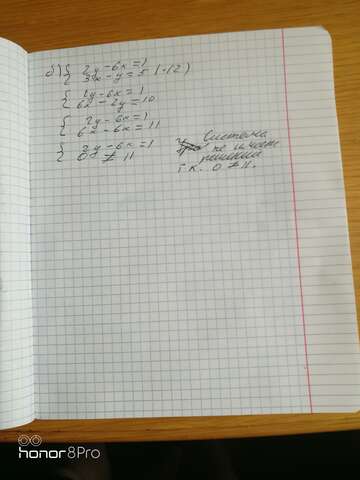 б) { 2y - 6x = 1
3x - y = 5 | · 2)
{ 2y - 6x = 1
6x - 2y = 10
{ 2y - 6x = 1
6x - 6x = 11
{ 2y - 6x = 1
0 ≠ 11
Система
не имеет
решений
т.к. 0 ≠ 11.
honor 8 Pro